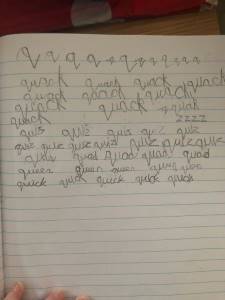 q q q q q q q q q q q
quack quack quack quack
quack quack quack
quack quack quack
quack zzzz
quiz quiz quiz quiz quiz
quiz quiz quiz quiz quiz quiz quiz
quiz quad quad quad quad
queen queen queen queen
quick quick quick quick quick